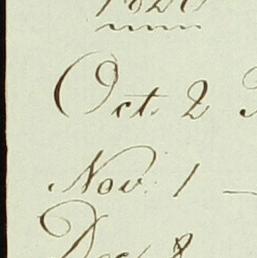 Oct. 2
Nov. 1 —
Dec. 8